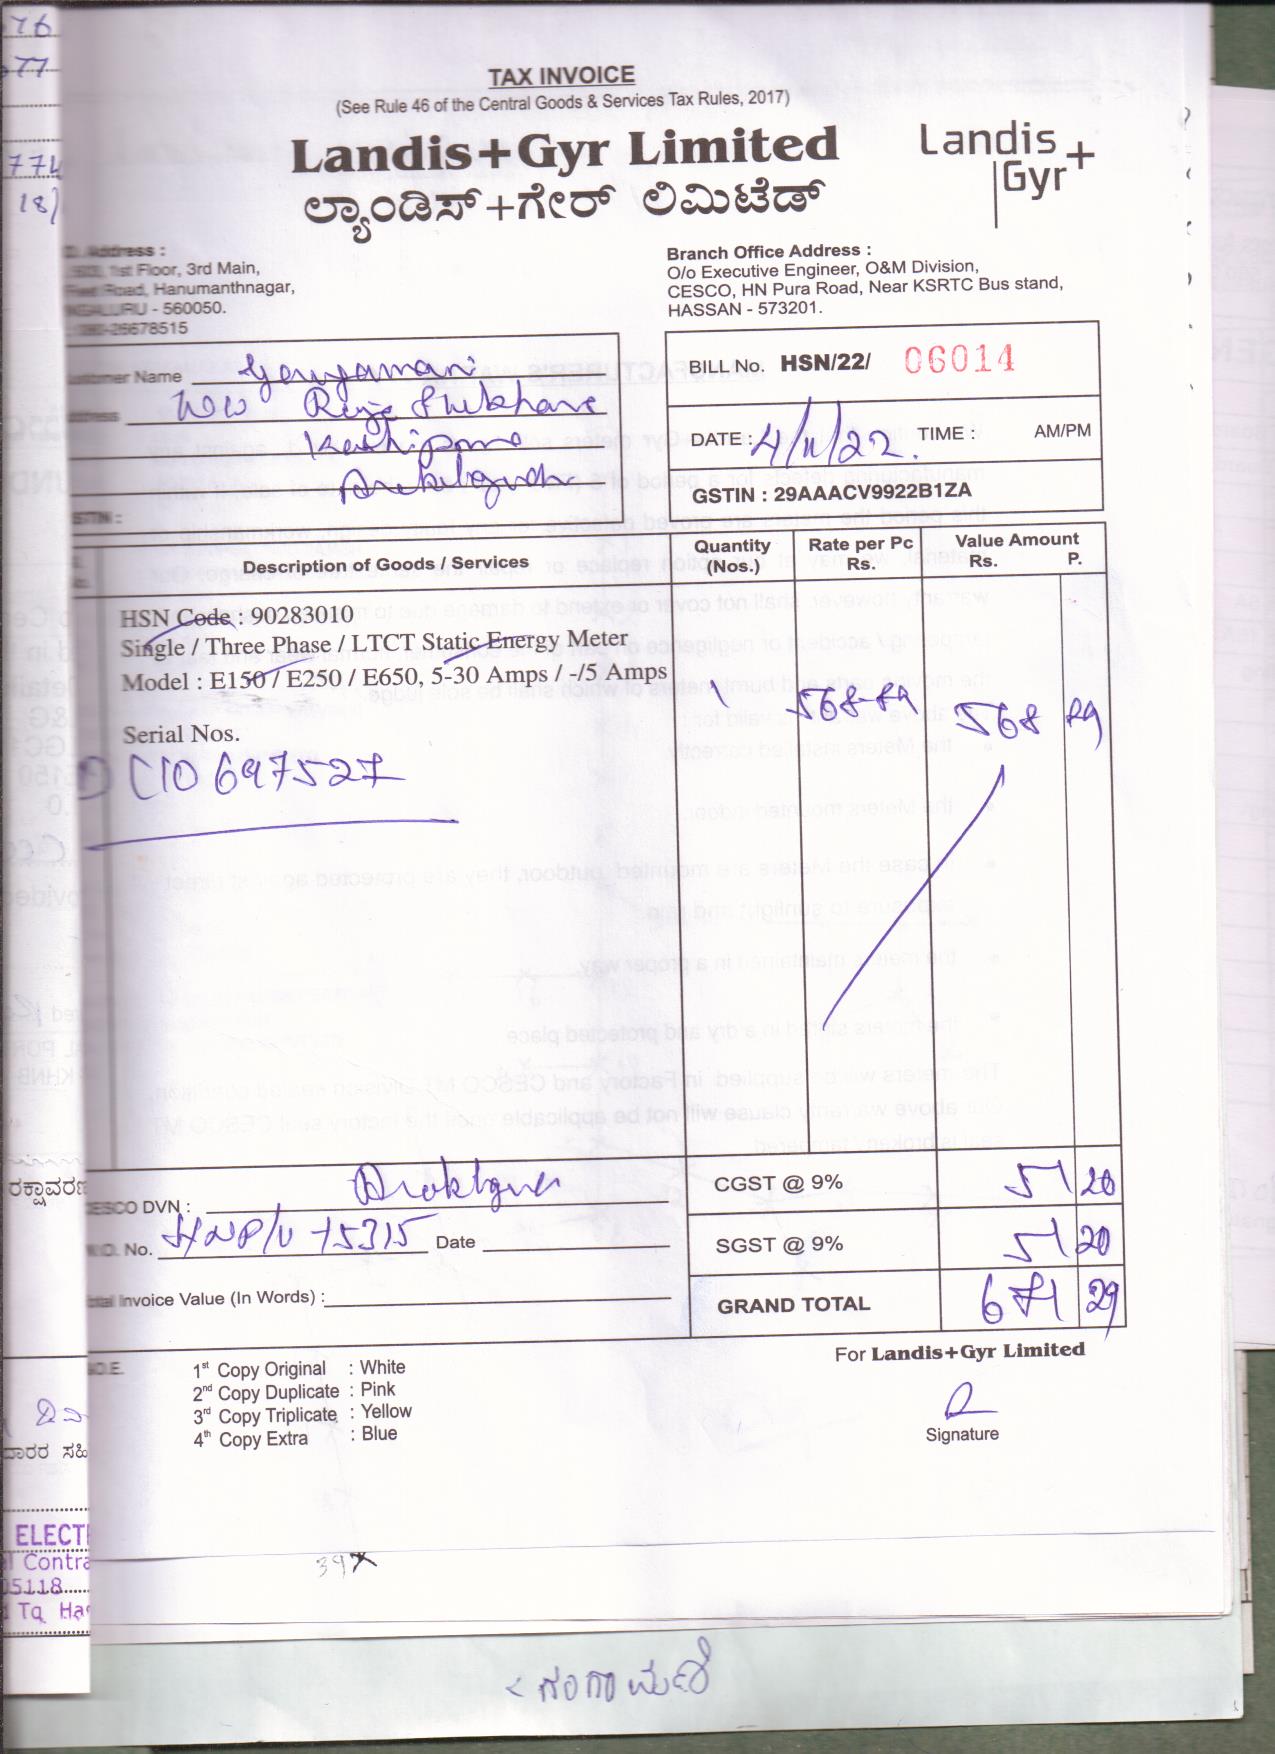 76
77
774
18)
TAX INVOICE
(See Rule 46 of the Central Goods & Services Tax Rules, 2017)
Landis+Gyr Limited
Landis
Gyr+
ಲ್ಯಾಂಡಿಸ್+ಗೇರ್ ಲಿಮಿಟೆಡ್
Address :
1st Floor, 3rd Main,
Road, Hanumanthnagar,
- 560050.
26678515
Branch Office Address :
O/o Executive Engineer, O&M Division,
CESCO, HN Pura Road, Near KSRTC Bus stand,
HASSAN - 573201.
Customer Name
W/o
BILL No. HSN/22/ 06014
DATE : 4/11/22. TIME : AM/PM
GSTIN : 29AAACV9922B1ZA
Description of Goods / Services
Quantity (Nos.)
Rate per Pc Rs.
Value Amount Rs. P.
HSN Code : 90283010
Single / Three Phase / LTCT Static Energy Meter
Model : E150 / E250 / E650, 5-30 Amps / -/5 Amps
1 568-89 568 89
Serial Nos.
1) C10697527
CESCO DVN :
CGST @ 9% 51 20
W.O. No. Date
SGST @ 9% 51 20
Total Invoice Value (In Words) :
GRAND TOTAL 671 29
N.O.E.
1st Copy Original : White
2nd Copy Duplicate : Pink
3rd Copy Triplicate : Yellow
4th Copy Extra : Blue
For Landis+Gyr Limited
Signature
ELECT
Contra
05118
Tq Ha
ಗಂಗಾಮಣಿ